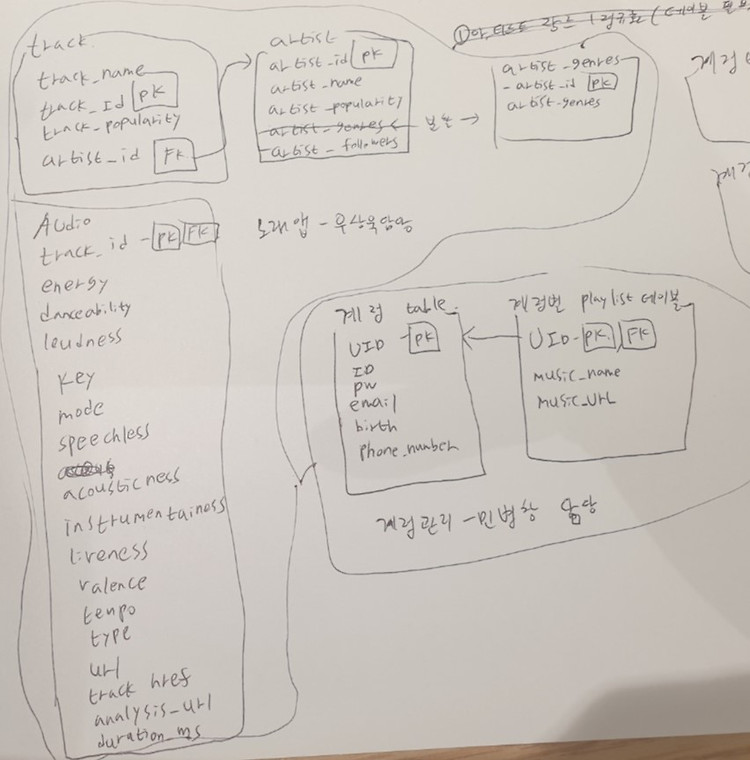 track
track_name
track_Id PK
track_popularity
artist_id FK
artist
artist_id PK
artist_name
artist_popularity
artist_genres
artist_followers
분논 →
①아티스트 장르 1정규화 (테이블 필요
artist_genres
- artist_id PK
artist_genres
계정
계정
Audio
track_id - PK FK
energy
danceability
loudness
key
mode
speechless
acousticness
instrumentainess
liveness
valence
tempo
type
url
track href
analysis_url
duration_ms
노래앱 - 우상욱담당
계정 table
UID - PK
ID
pw
email
birth
phone_number
계정별 playlist 테이블
UID - PK, FK
music_name
music_URL
계정관리 - 민범창 담당